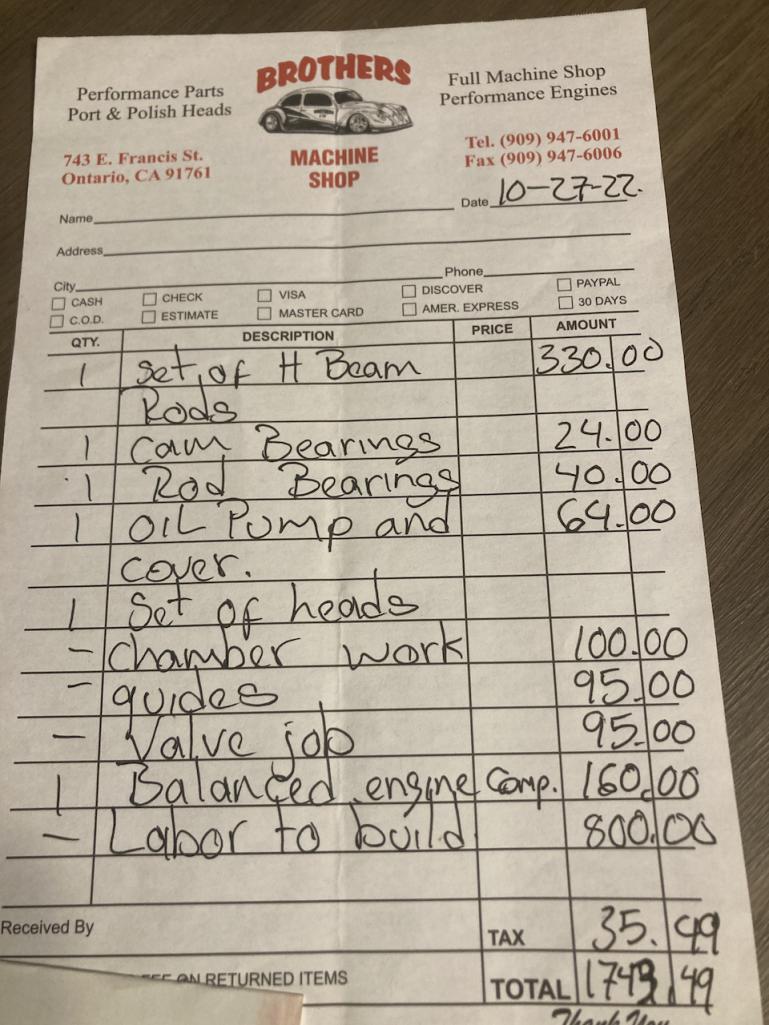 BROTHERS
Performance Parts
Port & Polish Heads
Full Machine Shop
Performance Engines
743 E. Francis St.
Ontario, CA 91761
MACHINE
SHOP
Tel. (909) 947-6001
Fax (909) 947-6006
Name
Date 10-27-22.
Address
City
Phone
CASH CHECK VISA DISCOVER PAYPAL
C.O.D. ESTIMATE MASTER CARD AMER. EXPRESS 30 DAYS
QTY. DESCRIPTION PRICE AMOUNT
1 Set of H Beam 330.00
Rods
1 Cam Bearings 24.00
1 Rod Bearings 40.00
1 OIL Pump and 64.00
cover.
1 Set of heads
- Chamber work 100.00
- guides 95.00
- Valve job 95.00
1 Balanced engine Comp. 160.00
- Labor to build 800.00
Received By
TAX 35.49
ON RETURNED ITEMS
TOTAL 1743.49
Thank You